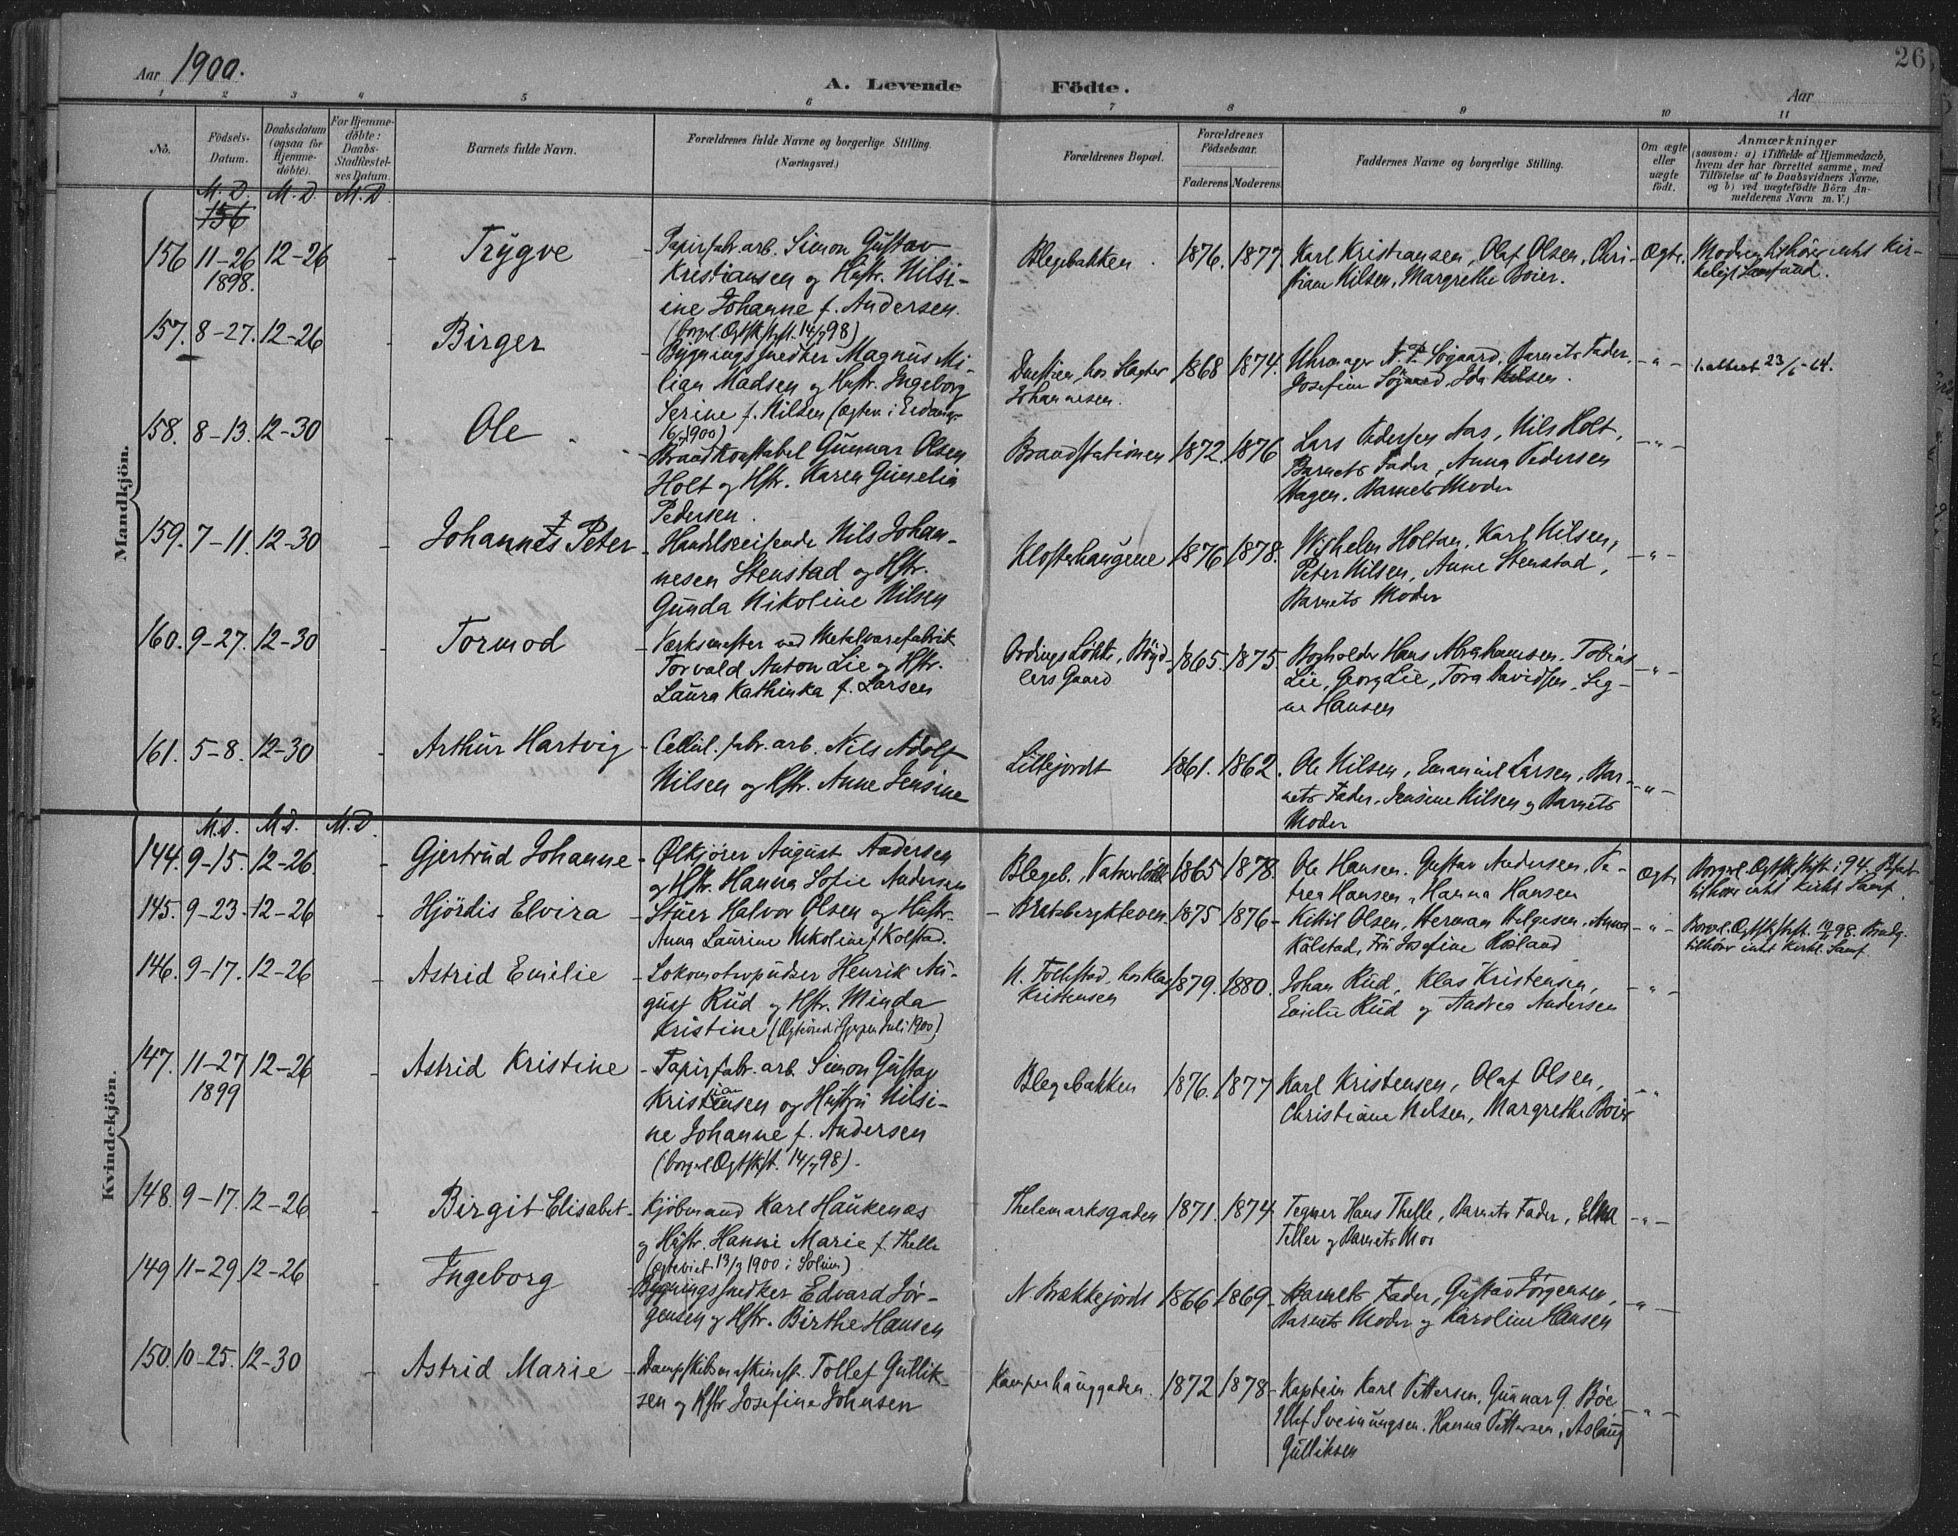 Aar 1900.
A. Levende Födte.
Aar
26
1 2 3 4 5 6 7 8 9 10 11
No.
Födsels-
Datum.
Daabsdatum
(ogsaa for
Hjemme-
döbte).
For Hjemme-
döbte:
Daabs-
Stadfæstel-
ses Datum.
Barnets fulde Navn.
Forældrenes fulde Navne og borgerlige Stilling.
(Næringsvei.)
Forældrenes Bopæl.
Forældrenes
Födselsaar.
Faderens Moderens
Faddernes Navne og borgerlige Stilling.
Om ægte
eller
uægte
födt.
Anmærkninger
(saasom: a) i Tilfælde af Hjemmedaab,
hvem der har forrettet samme, med
Tilföielse af to Daabsvidners Navne,
og b) ved uægtefödte Börn An-
melderens Navn m. V.)
Mandkjön.
M. D. M. D. M. D.
156
156 11-26 12-26 - Trygve - Papirfabr. arb. Simon Gustav
1898. Kristiansen og Hustr. Nilsi-
ine Johanne f. Andersen.
(borgl. Ægtsk. stift. 14/7 98)
Blegebakken. 1876. 1877. Karl Kristiansen, Olaf Olsen, Chri-
stiane Nilsen, Margrethe Boier.
Ægte. Modren tilhører intet kir-
keligt Samfund.
157. 8-27. 12-26 Birger Bygningssnedker Magnus Mi-
lian Madsen og Hustr. Ingeborg
Serine f. Nilsen (Ægtev. i Eidang.
1900)
Duestien, hos Slagter
Johannesen.
1868 1874. Uhrmager N. P. Søgaard, Barnets Fader,
Josefine Søgaard, Ida Nilsen.
-"- 23/6-64.
158. 8-13. 12-30 - Ole - Brandkonstabel Gunnar Olsen
Holt og Hstr. Karen Gunelia
Pedersen.
Brandstationen 1872. 1876 Lars Pedersen Aas, Nils Holt,
Barnets Fader, Anna Pedersen
Hagen, Barnets Moder
-"-
159. 7-11. 12-30 - Johannes Peter - Handelsreisende Nils Johan-
nesen Stenstad og Hstr.
Gunda Nikoline Nilsen
Klosterhaugene 1876 1878. Wilhelm Holtan, Karl Nilsen,
Peter Nilsen, Anne Stenstad,
Barnets Moder
-"-
160. 9-27. 12-30 - Tormod - Værksmester ved Metalvarefabrik
Torvald Anton Lie og Hstr.
Laura Kathinka f. Larsen
lers Gaard
1865. 1875. Bogholder Hans Abrahamsen, Tobias
Lie, Georg Lie, Tora Davidsen, Sig-
ne Hansen
-"-
161. 5-8. 12-30 - Arthur Hartvig - Cellul. fabr. arb. Nils Adolf
Nilsen og Hstr. Anne Jensine
Lillejordt 1861. 1862. Ole Nilsen, Emanuel Larsen, Bar-
nets Fader, Jensine Nilsen og Barnets
Moder
-"-
Kvindekjön.
M. D. M. D. M. D.
144. 9-15. 12-26 - Gjertrud Johanne - Ølkjører August Andersen
og Hstr. Hanna Sofie Andersen
Blegeb., 1865 1878. Ole Hansen, Gustav Andersen, Pe-
trea Hansen, Hanna Hansen
Ægte Borgerl. Ægtsk. stift. i 94.
tilhører intet kirkl. Samf.
145. 9-23. 12-26 Hjördis Elvira - Stuer Halvor Olsen og Hustr.
Anna Laurine Nikoline f. Kolstad.
- Bratsbergkleven. 1875 1876 - Kittil Olsen, Herman Helgesen, Anna
Kålstad, Frk Josefine Røsland
-"- Borgl. Ægtsk. stift. 98.
tilhör intet kirkl. Samf.
146. 9-17. 12-26 - Astrid Emilie - Lokomotivpudser Henrik Au-
gust Rud og Hstr. Minda
Kristine (Ægteviet i Gjerpen Juli 1900)
N. Follestad, hos Klas
Kristensen
1879. 1880. Johan Rud, Klas Kristensen,
Emilie Rud og Andrea Andersen
-"-
147. 11-27 12-26 - Astrid Kristine - Papirfabr. arb. Simon Gustav
1899 Kristiansen og Hustru Nilsi-
ne Johanne f. Andersen
(borgerl. Ægtsk. st. 14/7 98).
Blegebakken 1876. 1877 Karl Kristensen, Olaf Olsen,
Christiane Nilsen, Margrethe Boier
-"-
148. 9-17. 12-26 - Birgit Elisabet - Kjöbmand Karl Haukenæs
og Hustr. Hanni Marie f. Thelle
(ægteviet 13/3 1900 i Solum)
Thelemarksgaden 1871. 1874. Tegner Hans Thelle, Barnets Fader, Elna
Teller og Barnets Mor
-"-
149 11-29 12-26 - Ingeborg - Bygningssnedker Edvard Jör-
gensen og Hstr. Birthe Hansen
N Brækkejordt 1866 1869 - Barnets Fader, Gustav Jörgensen,
Barnets Moder og Karoline Hansen
-"-
150. 10-25. 12-30 - Astrid Marie - Dampskibsmaskinist Tollef Gullik-
sen og Hstr Josefine Johnsen
Kamperhauggaden. 1872 1878 - Kaptein Karl Pettersen, Gunnar G. Böe
Ellef Sveinungsen, Hanna Pettersen, Aslaug
Gulliksen
-"-